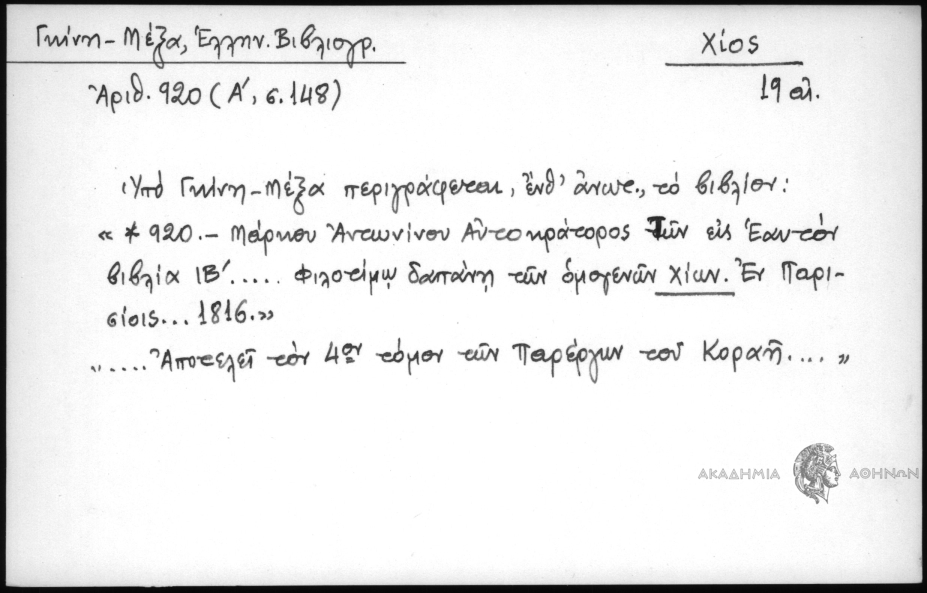 Γκίνη-Μέξα, Ἑλλην. Βιβλιογρ.
Χίος
Ἀριθ. 920 (Α΄, σ. 148)
19 αἰ.
Ὑπό Γκίνη-Μέξα περιγράφεται, ἔνθ' ἀνωτ., τό βιβλίον:
« * 920. - Μάρκου Ἀντωνίνου Αὐτοκράτορος Τῶν εἰς Ἑαυτόν
βιβλία ΙΒ΄..... Φιλοτίμῳ δαπάνῃ τῶν ὁμογενῶν Χίων. Ἐν Παρι-
σίοις... 1816.»
«.... Ἀποτελεῖ τόν 4ον τόμον τῶν Παρέργων τοῦ Κοραῆ.... »
ΑΚΑΔΗΜΙΑ ΑΘΗΝΩΝ